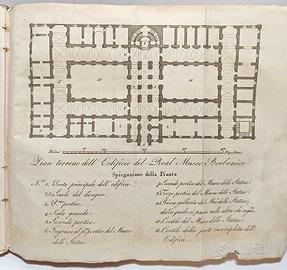 Pian terreno dell' Edifizio del Real Museo Borbonico
Spiegazione della Pianta
N.º 1. Porta principale dell' edifizio.
2. Scuole del disegno.
3. P.mo portico.
4. Sala grande.
5. Secondo portico.
6. Ingresso al p.º portico del Museo
delle Statue.
7. Secondo portico del Museo delle Statue.
8. Terzo portico del Museo delle Statue.
9. Prima galleria del Mus. delle Statue,
dalla quale si passa alle altre che seguono.
10. Cortile del Museo delle Statue.
11. Cortile della parte incompleta dell'
Edifizio.
subito.it